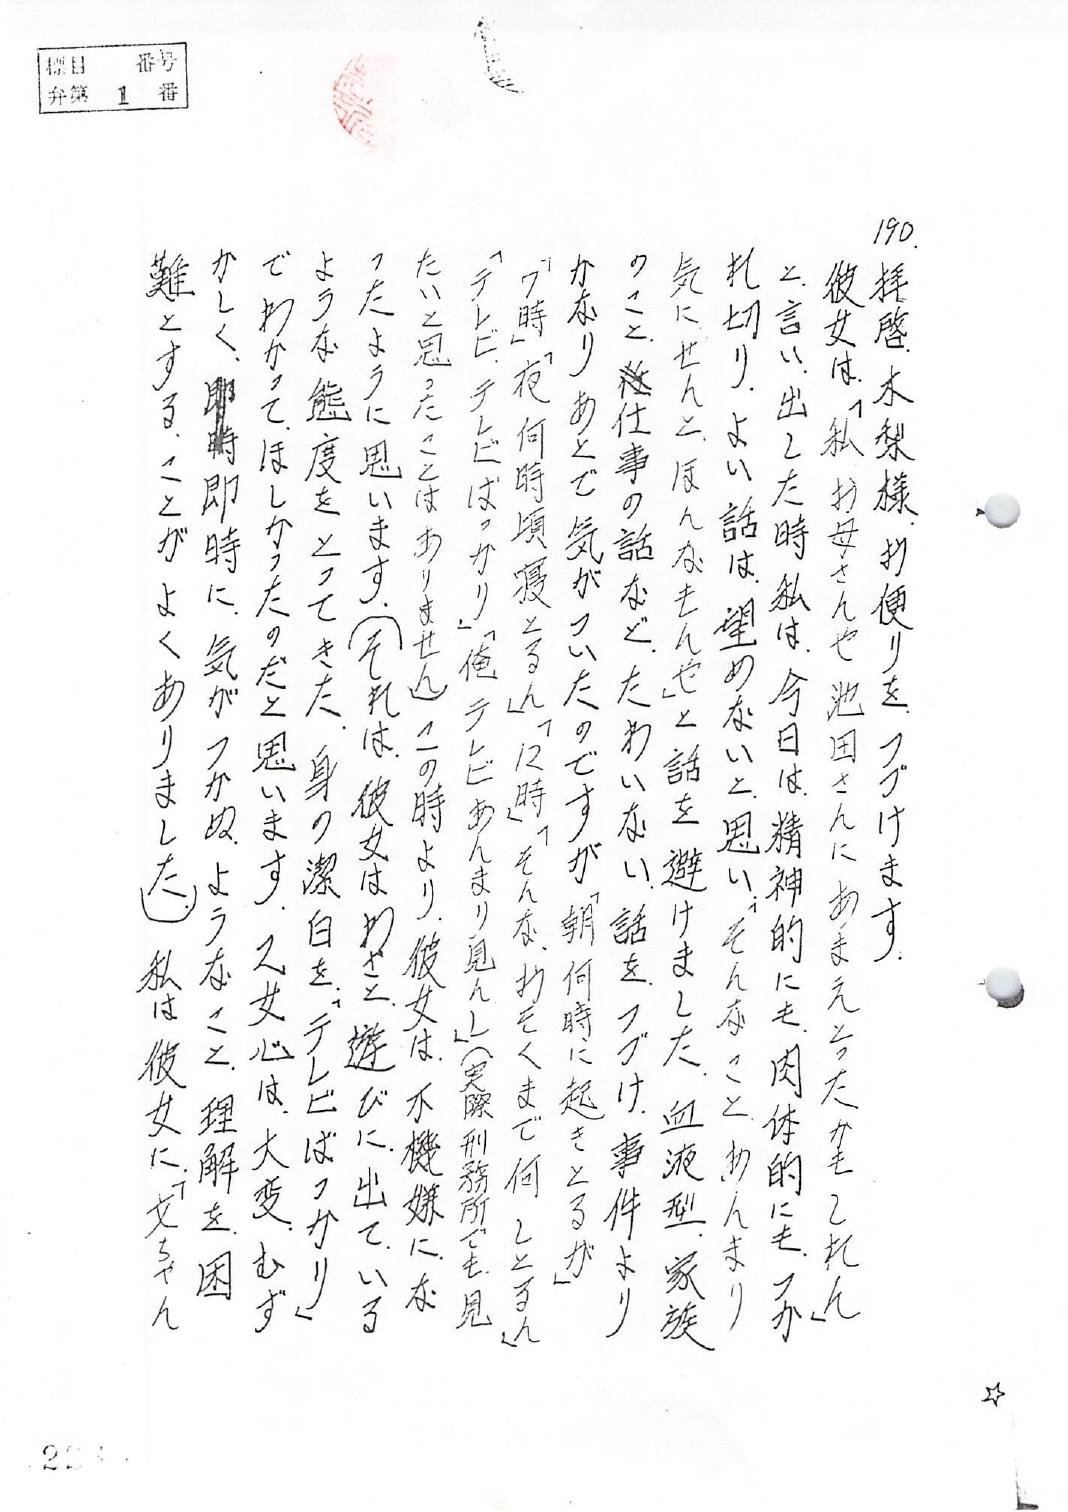 標目 番号
弁第 1 番
190.
拝啓.木梨様.お便りを.つづけます.
彼女は.「私お母さんや池田さんにあまえとったかもしれん」
と.言い.出した時私は.今日は.精神的にも.肉体的にも.つか
れ切り.よい話は.望めないと.思い.「そんなこと.あんまり
気に.せんと.ほんなもんや」と話を避けました.血液型.家族
のこと.仕事の話など.たわいない.話を.つづけ.事件より
かなりあとで気がついたのですが「朝何時に起きとるが」
「7時」「夜何時頃寝とるん」「12時」「そんな.おそくまで何しとるん」
「テレビ.テレビばっかり」「俺テレビあんまり見ん」(実際刑務所でも.見
たいと思ったことはありません)この時より.彼女は.不機嫌に.な
ったように思います.(それは.彼女はわざと.遊びに.出て.いる
ような態度をとってきた.身の潔白を.「テレビばっかり」
でわかって.ほしかったのだと思います.又女心は.大変.むず
かしく.即時即時に.気がつかぬ.ようなこと.理解を.困
難とする.ことがよくありました.)私は彼女に.「文ちゃん
☆